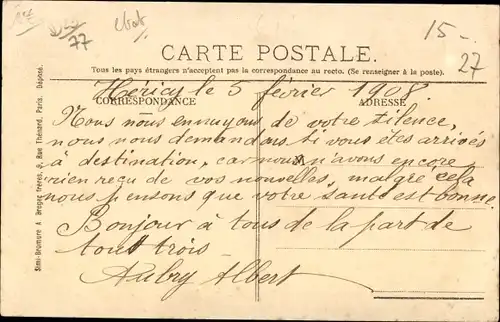 77
état
15-
27
CARTE POSTALE.
Tous les pays étrangers n'acceptent pas la correspondance au recto. (Se renseigner à la poste).
CORRESPONDANCE
ADRESSE
Héricy le 5 février 1908.
Nous nous ennuyons de votre silence,
nous nous demandons si vous êtes arrivés
à destination, car nous n'avons encore
rien reçu de vos nouvelles, malgré cela
nous pensons que votre santé est bonne
Bonjour à tous de la part de
tous trois
Aubry Albert
Simi-Bromure A. Breger frères, 9, Rue Thénard, Paris. Déposé.